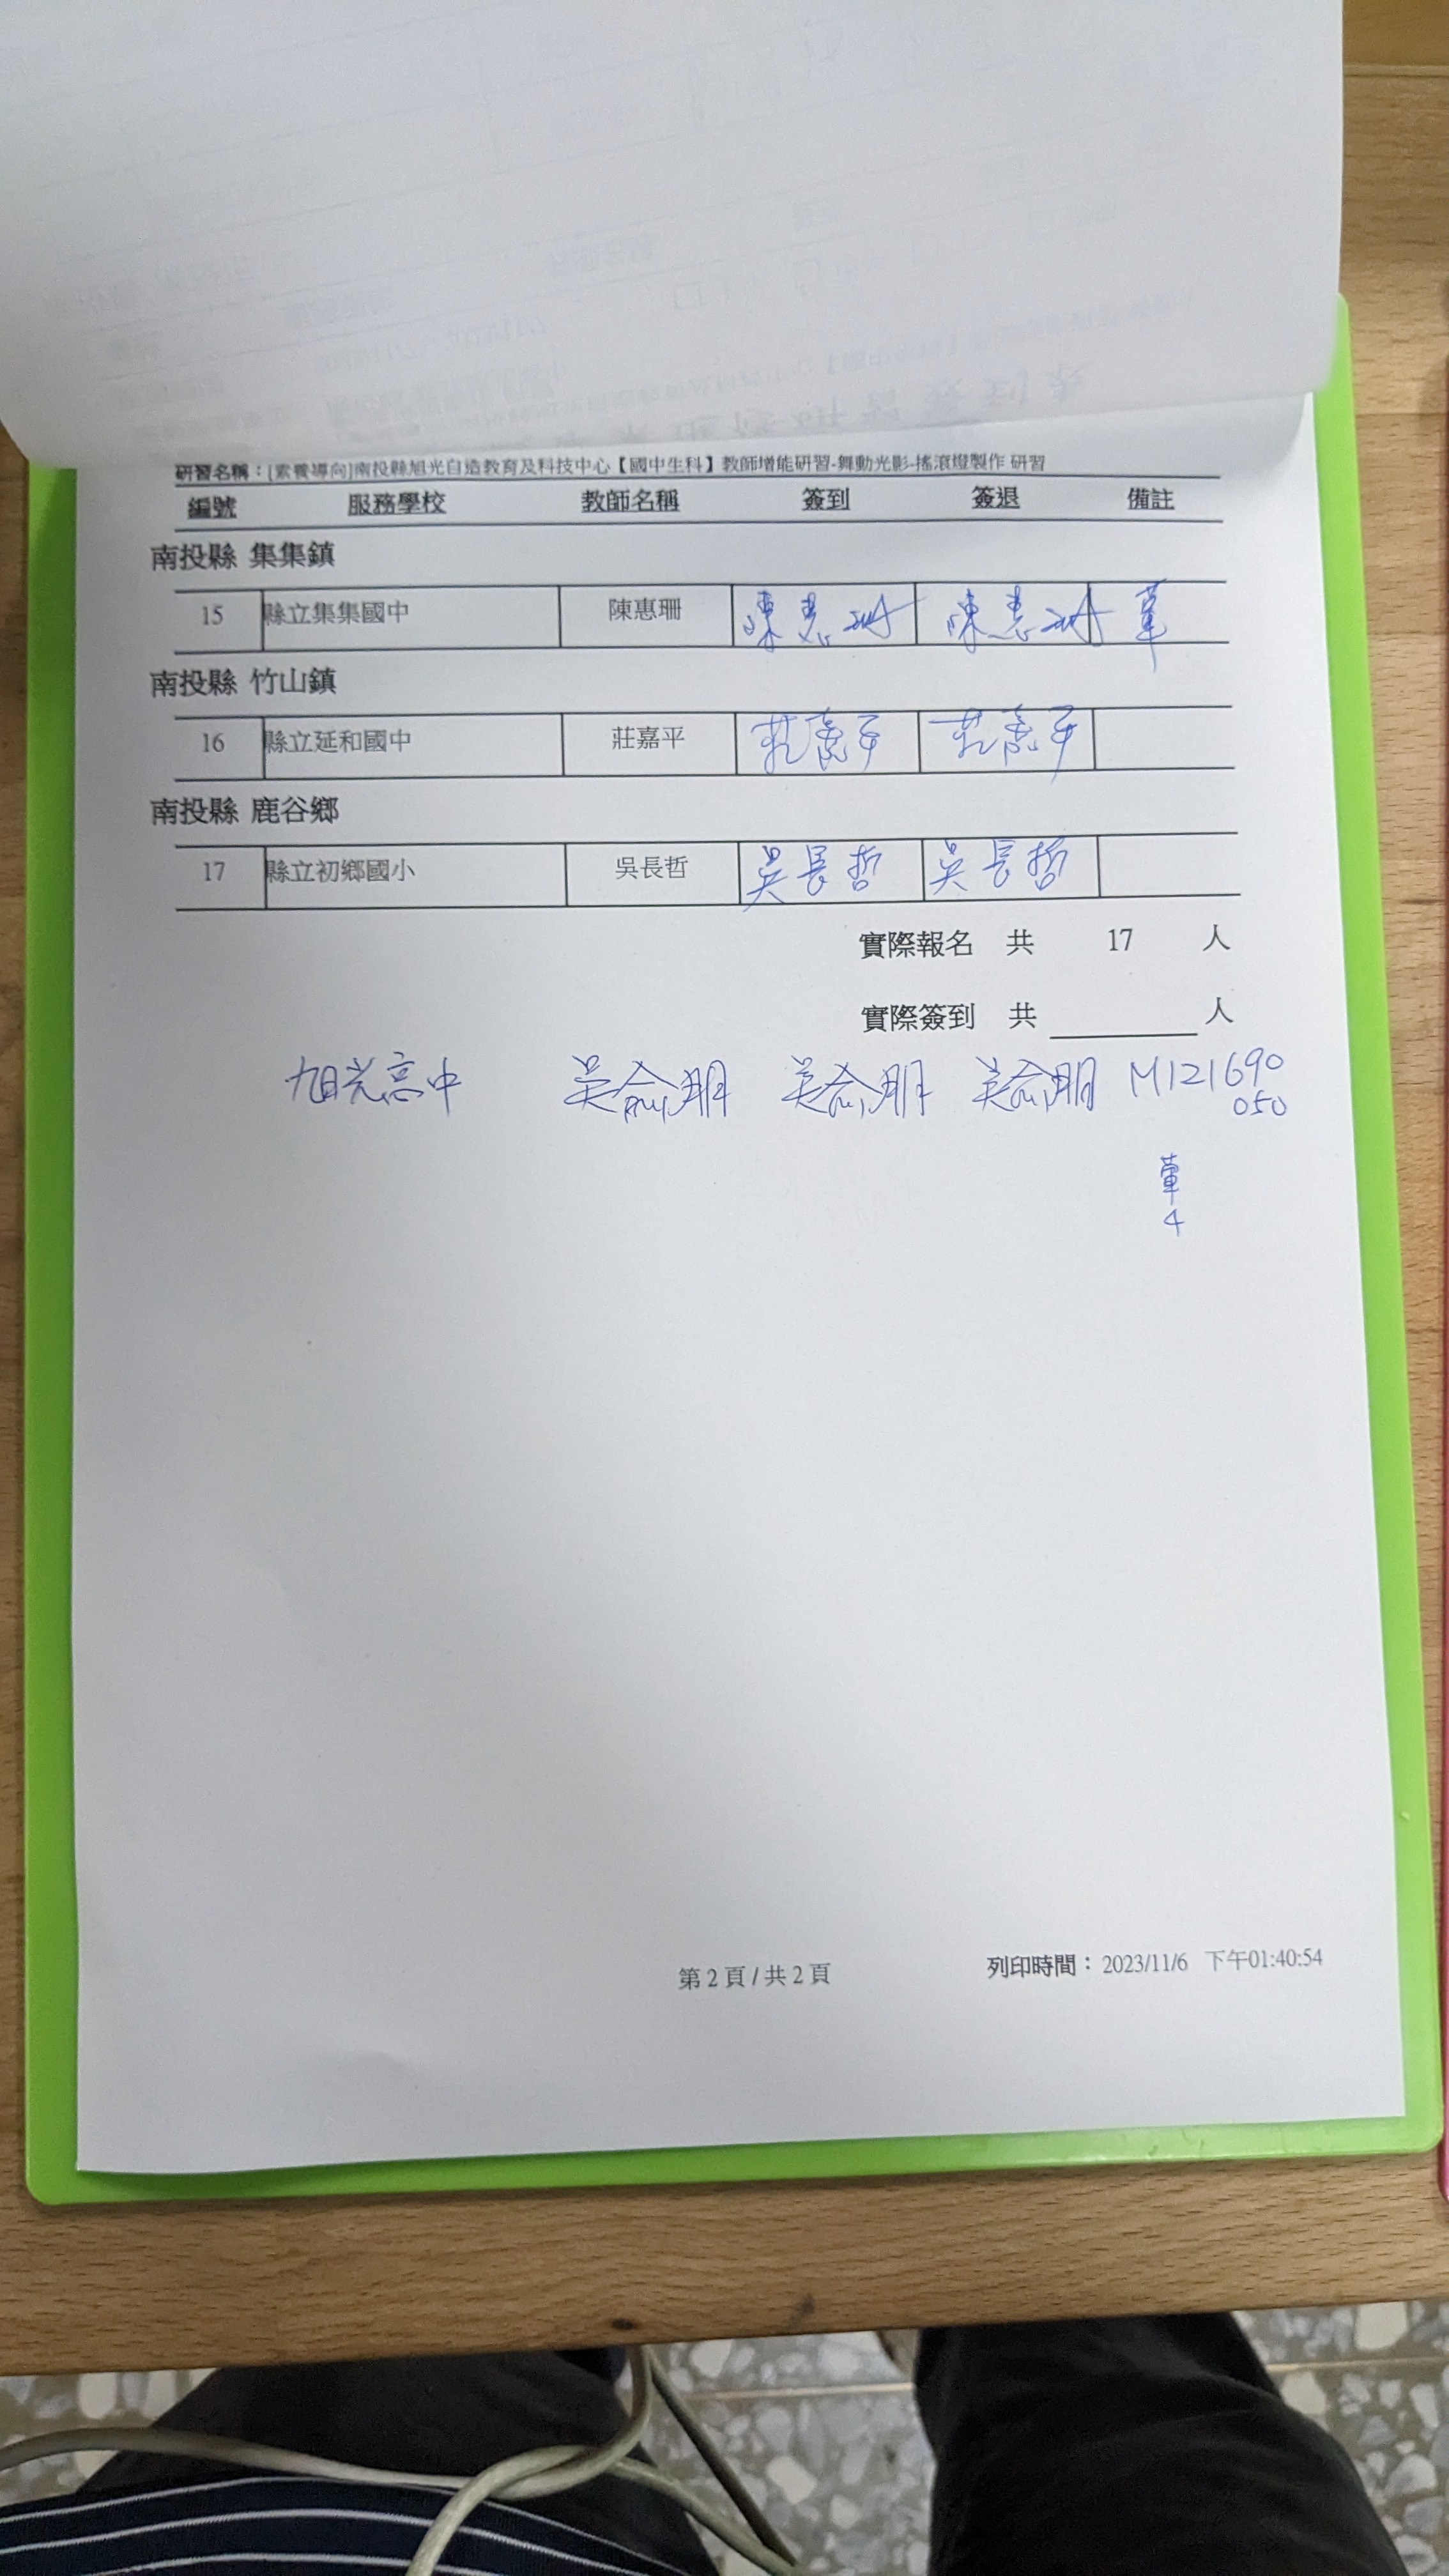 研習名稱：[素養導向]南投縣旭光自造教育及科技中心【國中生科】教師增能研習-舞動光影-搖滾燈製作 研習
編號 服務學校 教師名稱 簽到 簽退 備註
南投縣 集集鎮
15 縣立集集國中 陳惠珊 陳惠珊 陳惠珊 葷
南投縣 竹山鎮
16 縣立延和國中 莊嘉平 莊嘉平 莊嘉平
南投縣 鹿谷鄉
17 縣立初鄉國小 吳長哲 吳長哲 吳長哲
實際報名 共 17 人
實際簽到 共 人
旭光高中 吳俞朋 吳俞朋 吳俞朋 M121690
050
葷
4
第 2 頁 / 共 2 頁 列印時間： 2023/11/6 下午01:40:54